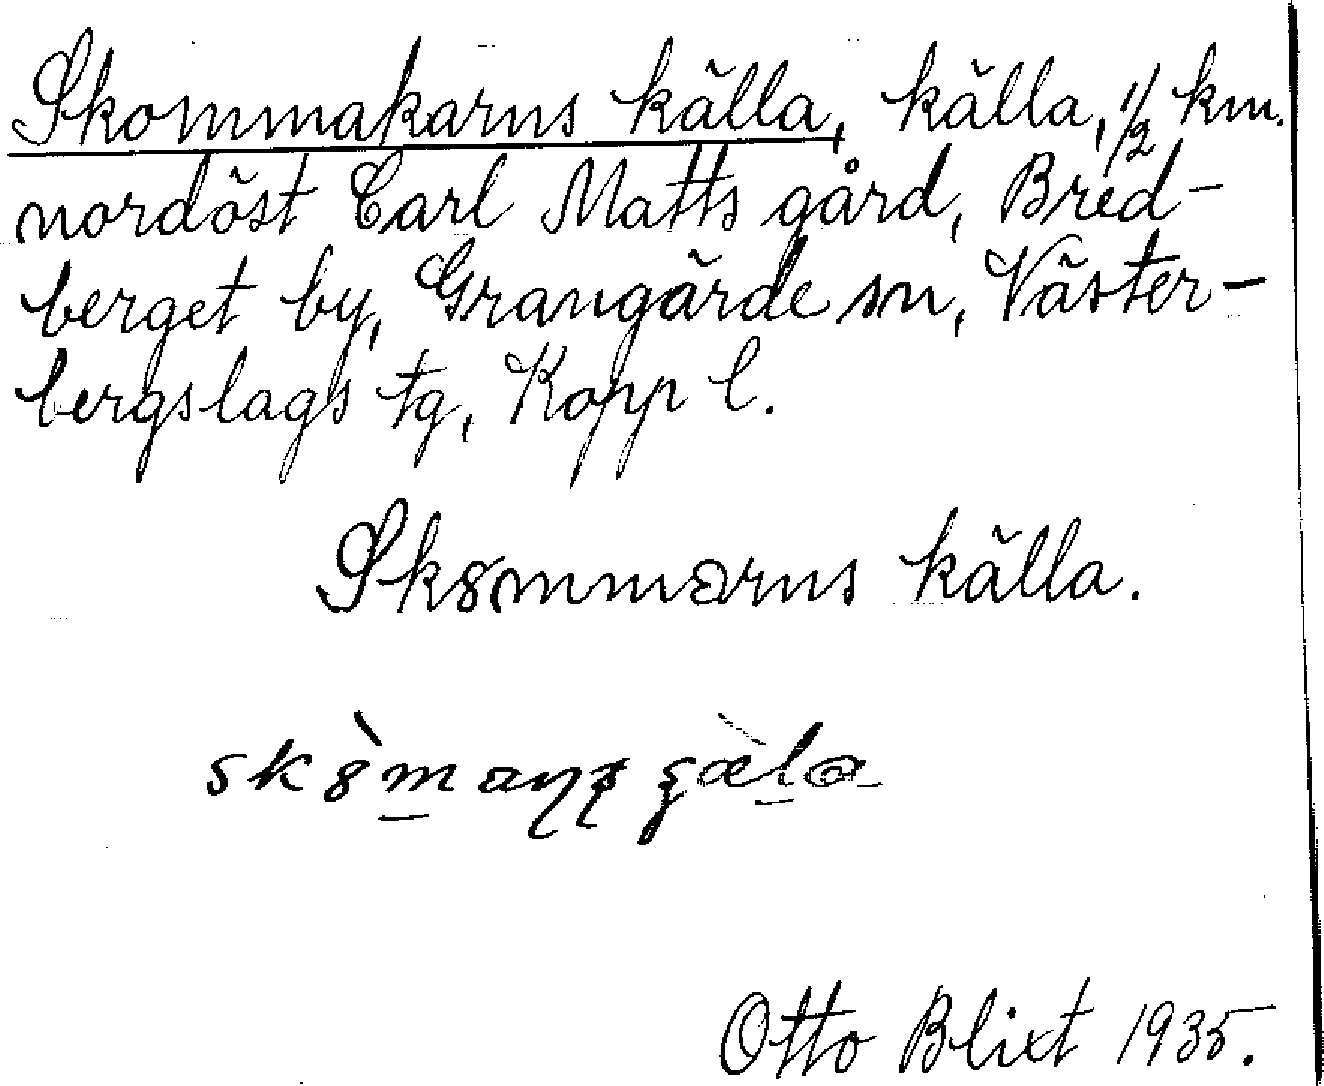 Skommakarns källa, källa, 1/2 km.
nordöst Carl Matts gård, Bred-
berget by, Grangärde sn, Väster-
bergslags tg, Kopp l.
Sk8mmarns källa.
Otto Blixt 1935.